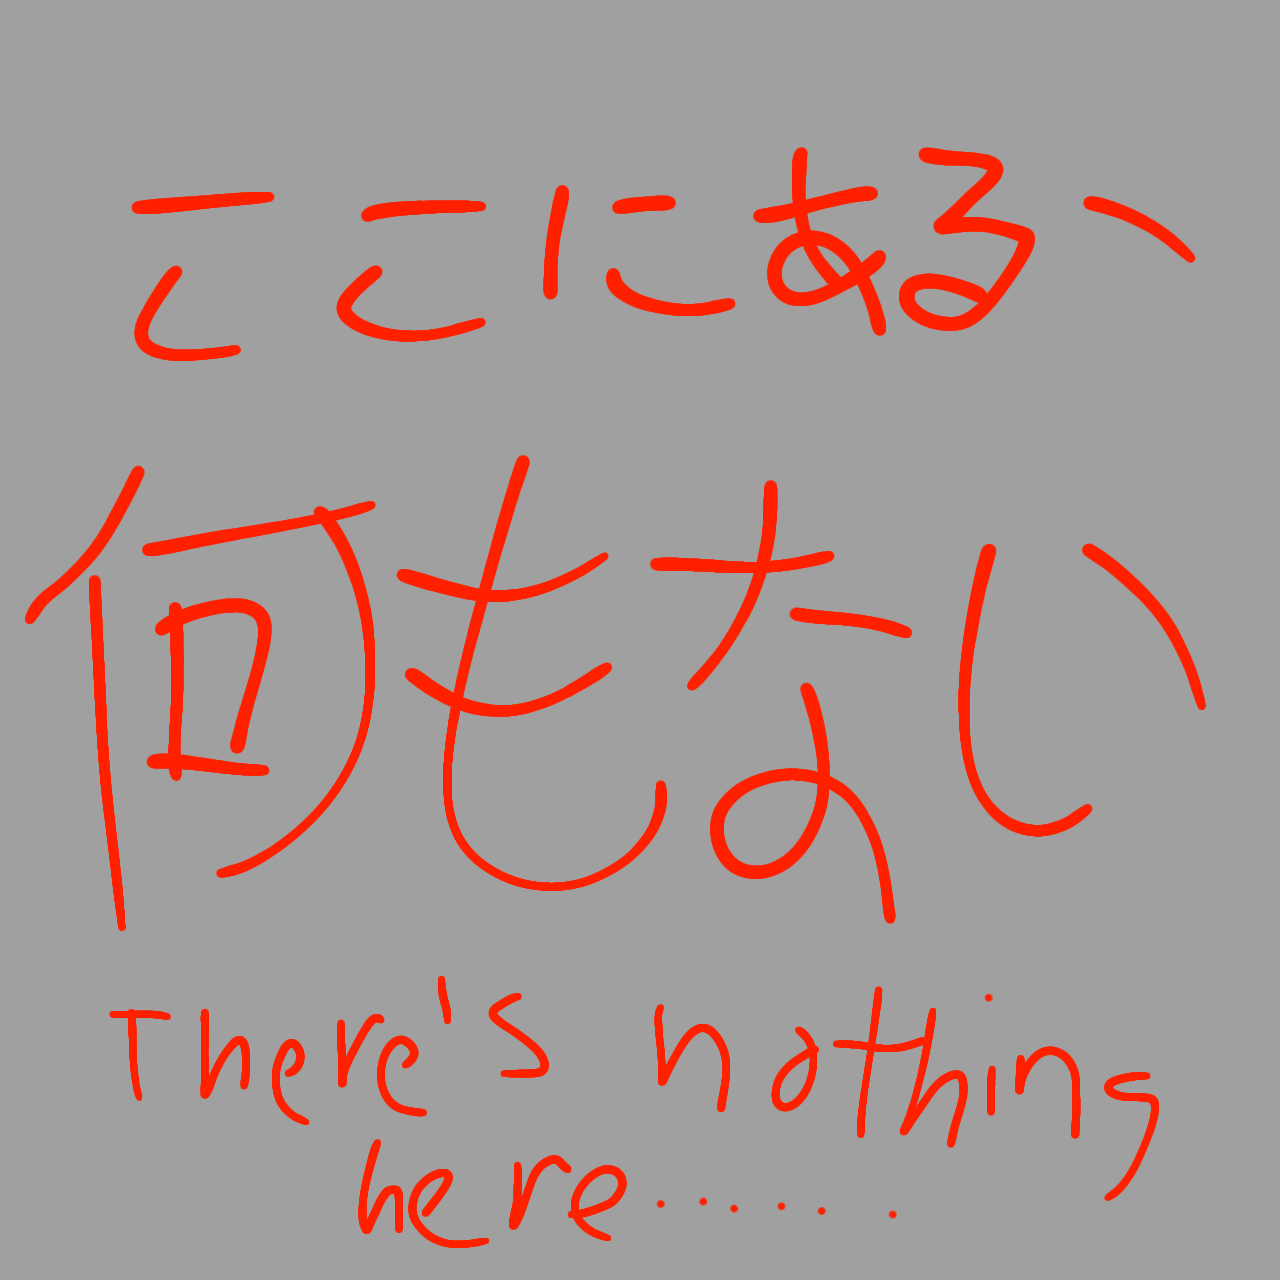 ここにある、
何もない
There's nothing
here......